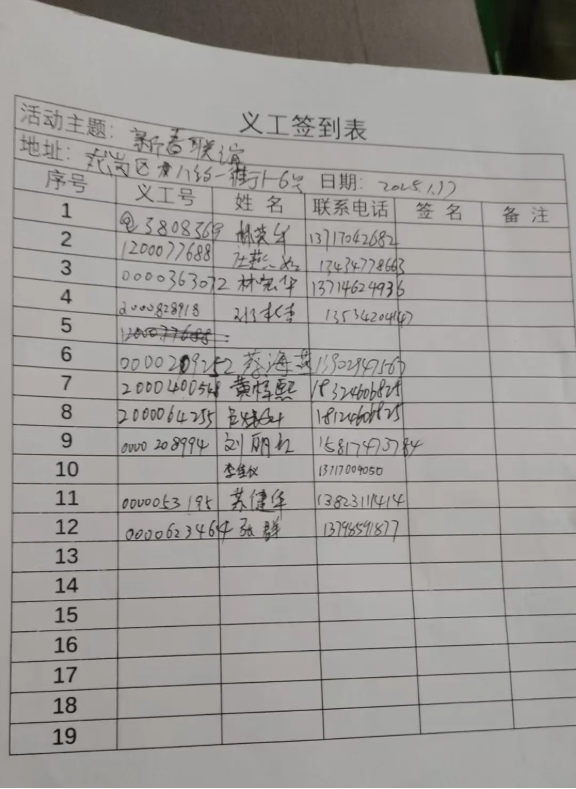 义工签到表
活动主题: 新春联谊
地址: 区 街1-6号 日期: 2025.1.17
序号 义工号 姓 名 联系电话 签 名 备 注
1 3808369 13717042682
2 1200077688 13434778663
3 0000363072 林宏华 13714624936
4 2000828918 13534204147
5
6 0000209252 蔡海燕 13902947567
7 2000400548 黄梓熙 18324606825
8 2000064255 18124606825
9 0000208994 刘丽红 15817473784
10 13717009050
11 0000053195 苏健华 13823111414
12 0000623464 张群 13798591877
13
14
15
16
17
18
19